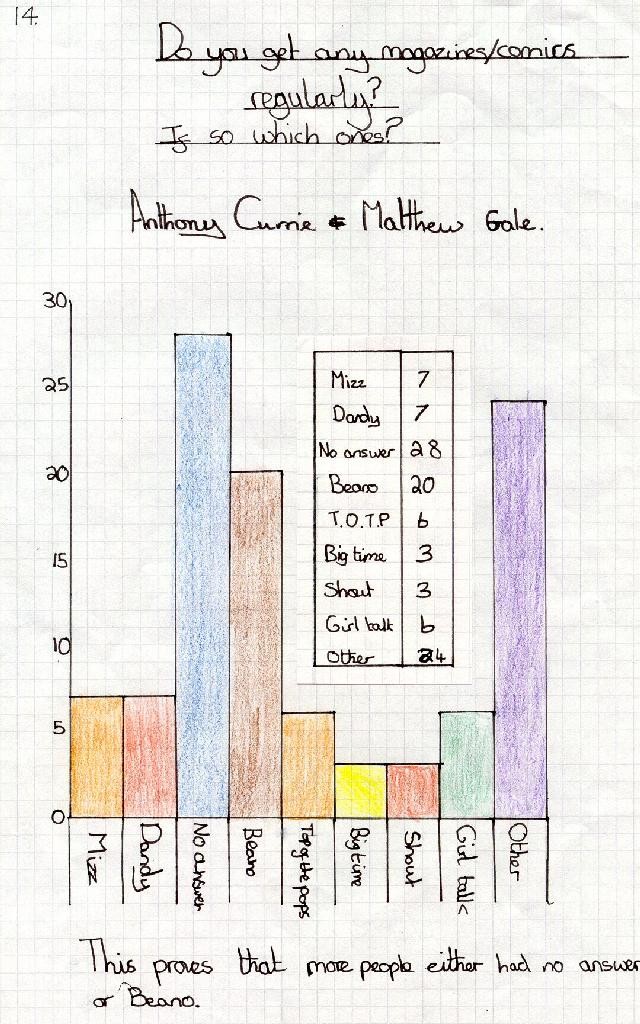 14.
Do you get any magazines/comics
regularly?
If so which ones?
Anthony Currie & Matthew Gale.
30
25
20
15
10
5
0
Mizz 7
Dandy 7
No answer 28
Beano 20
T.O.T.P 6
Big time 3
Shout 3
Girl talk 6
Other 24
Mizz
Dandy
No answer
Beano
Top of the pops
Big time
Shout
Girl talk
Other
This proves that more people either had no answer
or Beano.